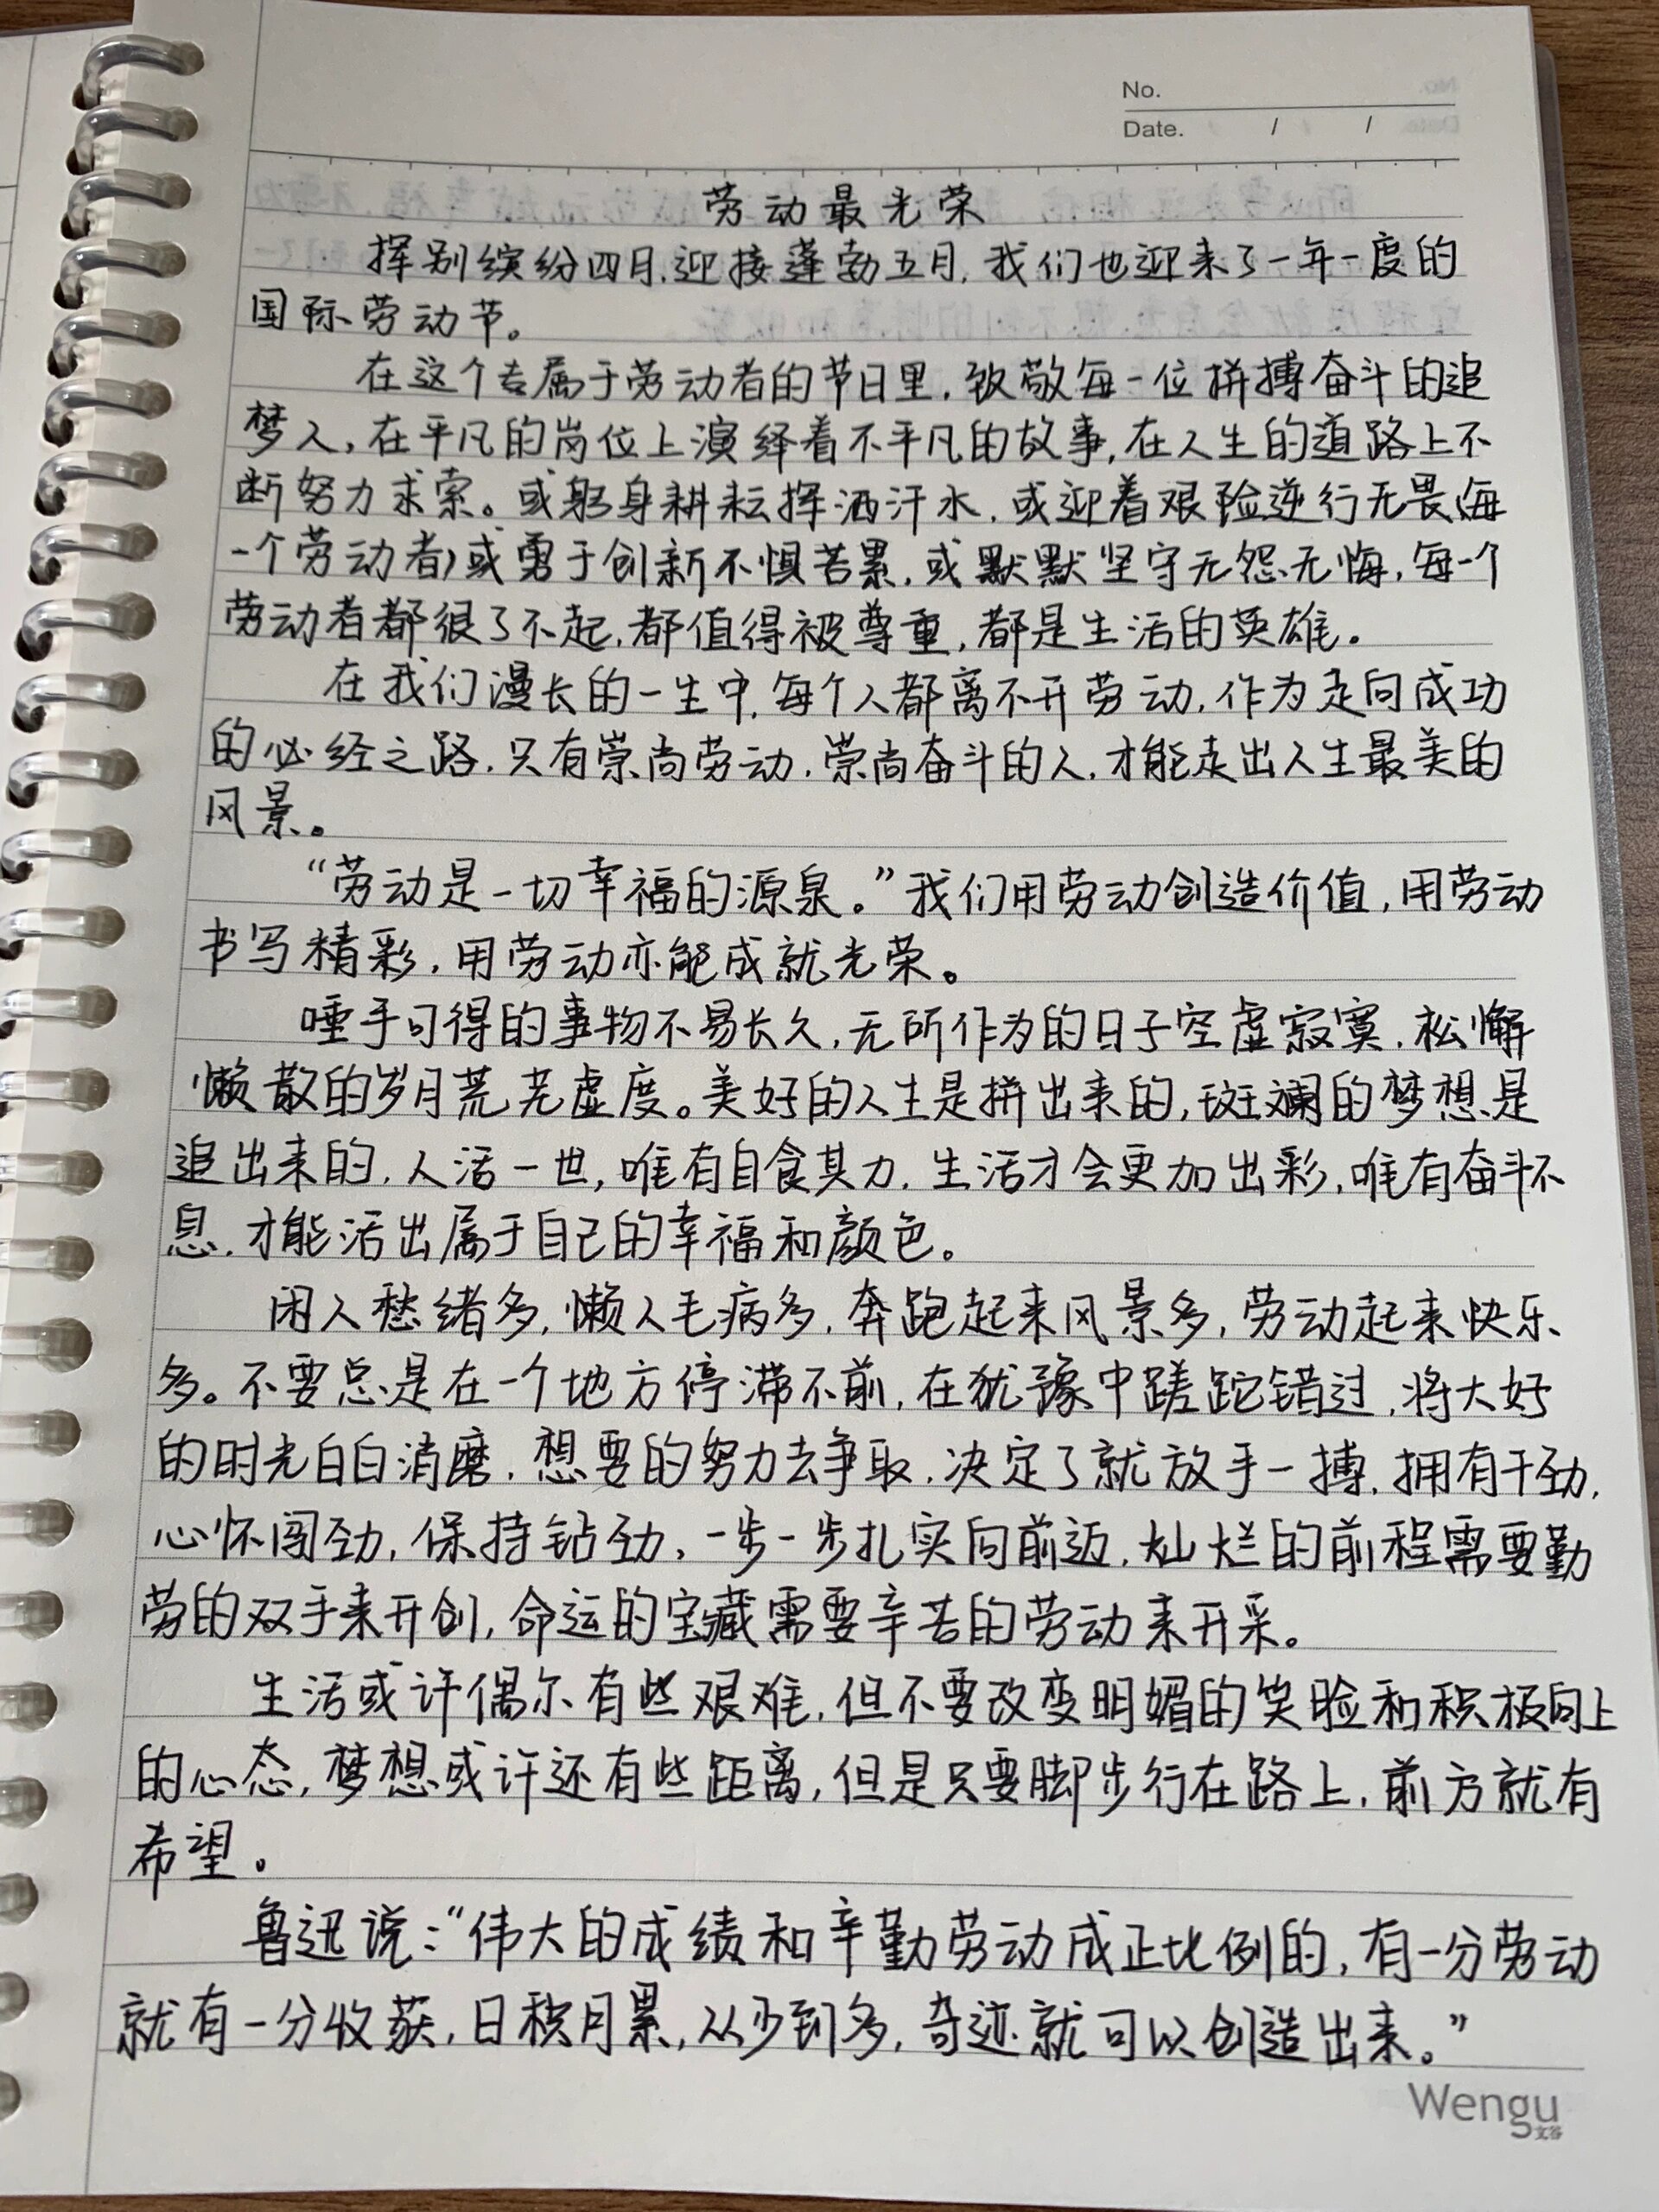 No.
Date. / /
劳动最光荣
挥别缤纷四月,迎接蓬勃五月,我们也迎来了一年一度的
国际劳动节。
在这个专属于劳动者的节日里,致敬每一位拼搏奋斗的追
梦人,在平凡的岗位上演绎着不平凡的故事,在人生的道路上不
断努力求索。或躬身耕耘挥洒汗水,或迎着艰险逆行无畏(每
一个劳动者)或勇于创新不惧苦累,或默默坚守无怨无悔,每一个
劳动者都很了不起,都值得被尊重,都是生活的英雄。
在我们漫长的一生中,每个人都离不开劳动,作为走向成功
的必经之路,只有崇尚劳动,崇尚奋斗的人,才能走出人生最美的
风景。
“劳动是一切幸福的源泉。”我们用劳动创造价值,用劳动
书写精彩,用劳动亦能成就光荣。
唾手可得的事物不易长久,无所作为的日子空虚寂寞,松懈
懒散的岁月荒芜虚度。美好的人生是拼出来的,斑斓的梦想是
追出来的,人活一世,唯有自食其力,生活才会更加出彩,唯有奋斗不
息,才能活出属于自己的幸福和颜色。
闲人愁绪多,懒人毛病多,奔跑起来风景多,劳动起来快乐
多。不要总是在一个地方停滞不前,在犹豫中蹉跎错过,将大好
的时光白白消磨,想要的努力去争取,决定了就放手一搏,拥有干劲,
心怀闯劲,保持钻劲,一步一步扎实向前迈,灿烂的前程需要勤
劳的双手来开创,命运的宝藏需要辛苦的劳动来开采。
生活或许偶尔有些艰难,但不要改变明媚的笑脸和积极向上
的心态,梦想或许还有些距离,但是只要脚步行在路上,前方就有
希望。
鲁迅说:“伟大的成绩和辛勤劳动成正比例的,有一分劳动
就有一分收获,日积月累,从少到多,奇迹就可以创造出来。”
Wengu
文谷